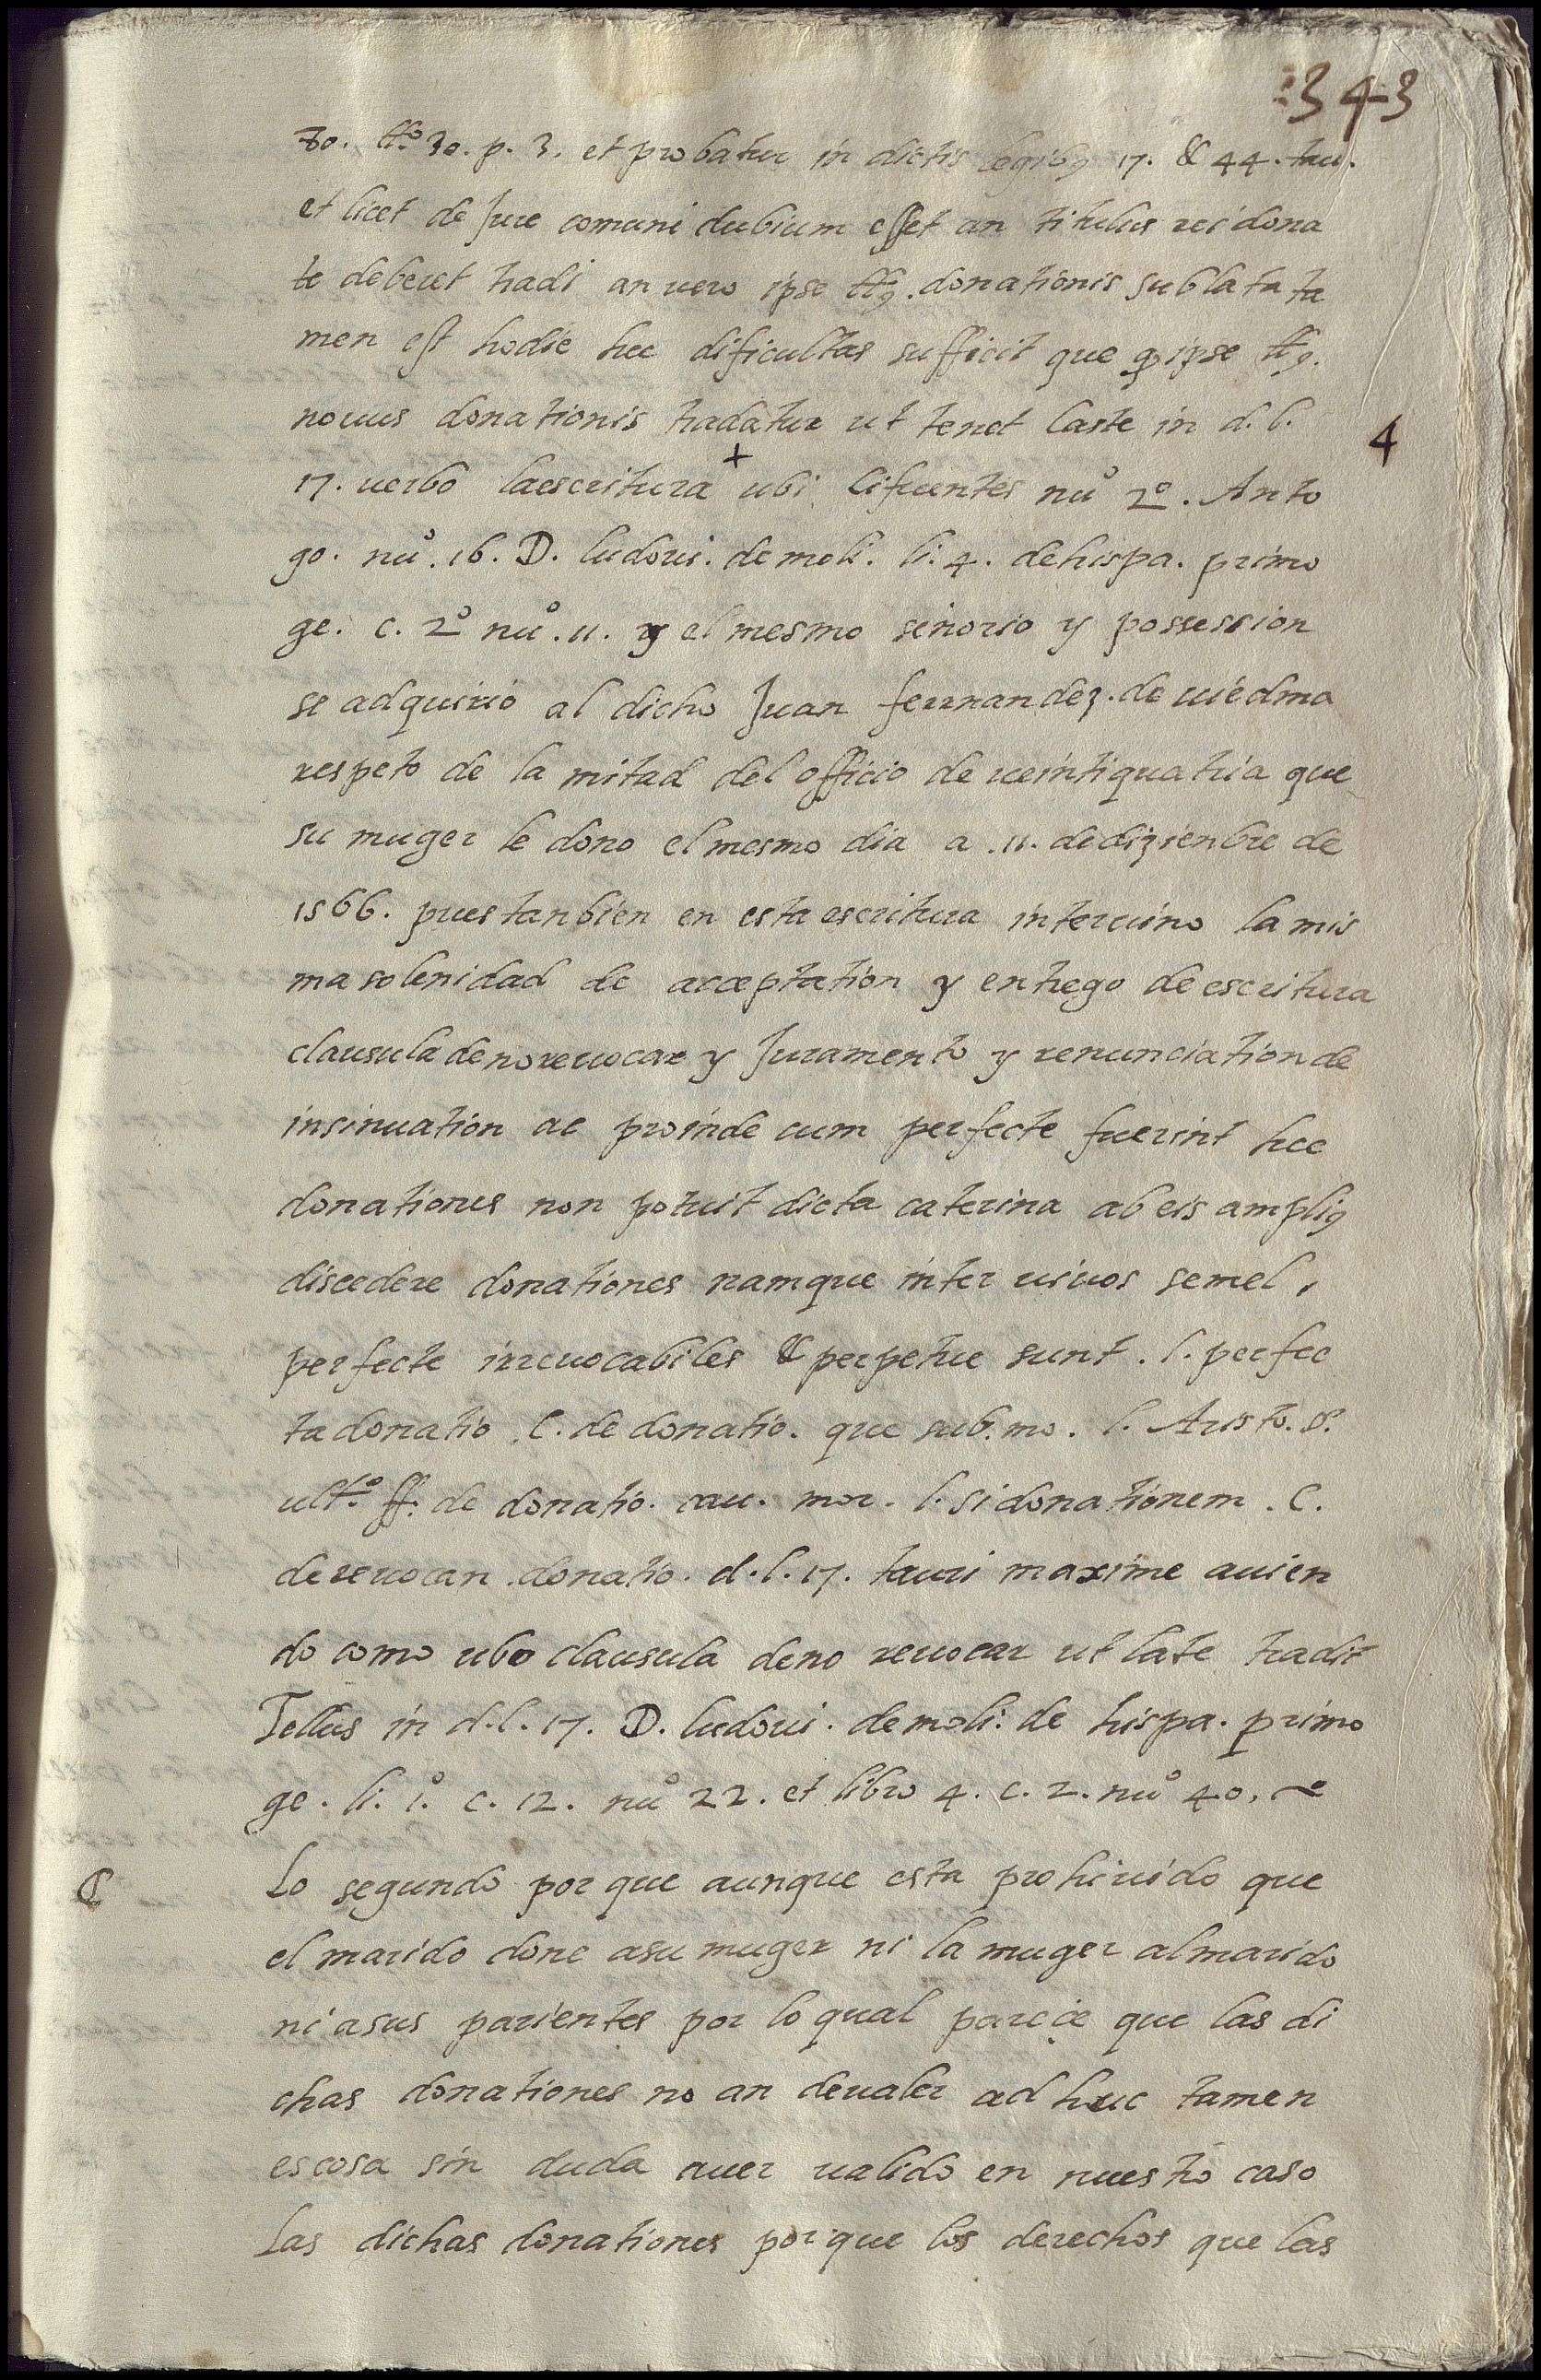 343
30. tt.º 30. p. 3. et probatur in dictis legibꝰ 17. & 44. tau.
et licet de Jure comuni dubium esset an titulus rei dona
te deberet tradi an uero ipse ttꝰ. donationis sublata ta
men est hodie hec dificultas sufficit que ipse ttꝰ.
nouus donationis tradatur ut tenet Caste in d. l.
4
17. uerbo la escritura + ubi Cifuentes nuº 2º. Anto
go. nuº. 16. D. ludoui. de moli. li. 4. de hispa. primo
ge. c. 2º nuº. 11. y el mesmo señorio y possession
se adquirio al dicho Juan ferrnandez. de uiedma
respeto de la mitad del officio de ueintiquatria que
su muger le dono el mesmo dia a .11. de dizienbre de
1566. pues tanbien en esta escritura interuino la mis
ma solenidad de acceptation y entrego de escritura
clausula de no reuocar y Juramento y renunciation de
insinuation ac proinde cum perfecte fuerint hec
donationes non potuit dicta caterina ab eis ampliꝰ
discedere donationes namque inter uiuos semel,
perfecte irreuocabiles & perpetue sunt. l. perfec
ta donatio C. de donatio. que sub. mo. l. Aristo. §.
ultº. ff. de donatio. cau. mor. l. si donationem. C.
de reuocan. donatio. d. l. 17. tauri maxime auien
do como ubo clausula de no reuocar ut late tradit
Tellus in d. l. 17. D. ludoui. de moli. de hispa. primo
ge. li. 1º. c. 12. nuº 22. et libro 4. c. 2. nuº 40. ~
C Lo segundo por que aunque esta prohiuido que
el marido done a su muger ni la muger al marido
ni a sus parientes por lo qual pareçe que las di
chas donationes no an de ualer ad huc tamen
es cosa sin duda auer ualido en nuestro caso
las dichas donationes por que los derechos que las